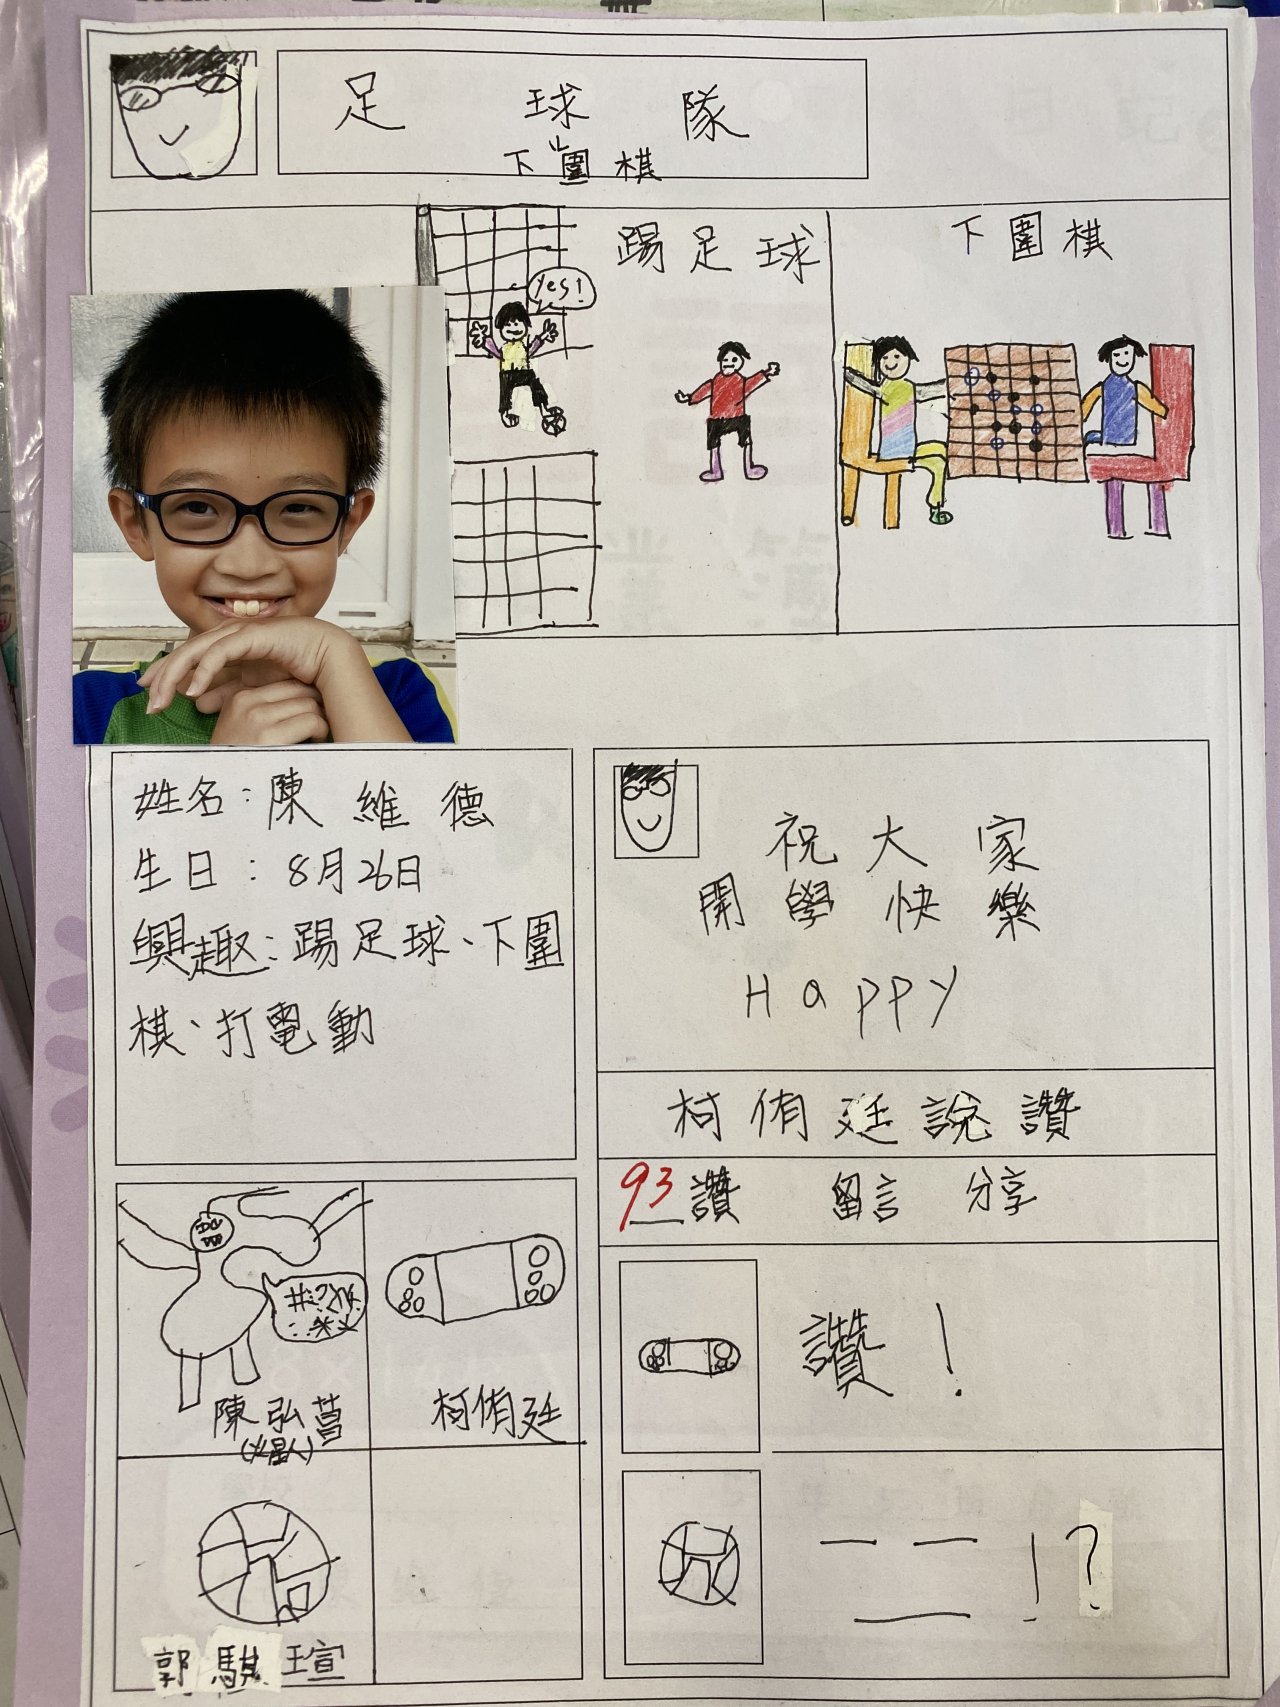 足球隊
下圍棋
踢足球
下圍棋
yes!
姓名:陳維德
生日:8月26日
興趣:踢足球、下圍
棋、打電動
祝大家
開學快樂
Happy
柯侑廷說讚
93讚 留言 分享
陳弘莒
(火星人)
柯侑廷
讚!
郭騏瑄